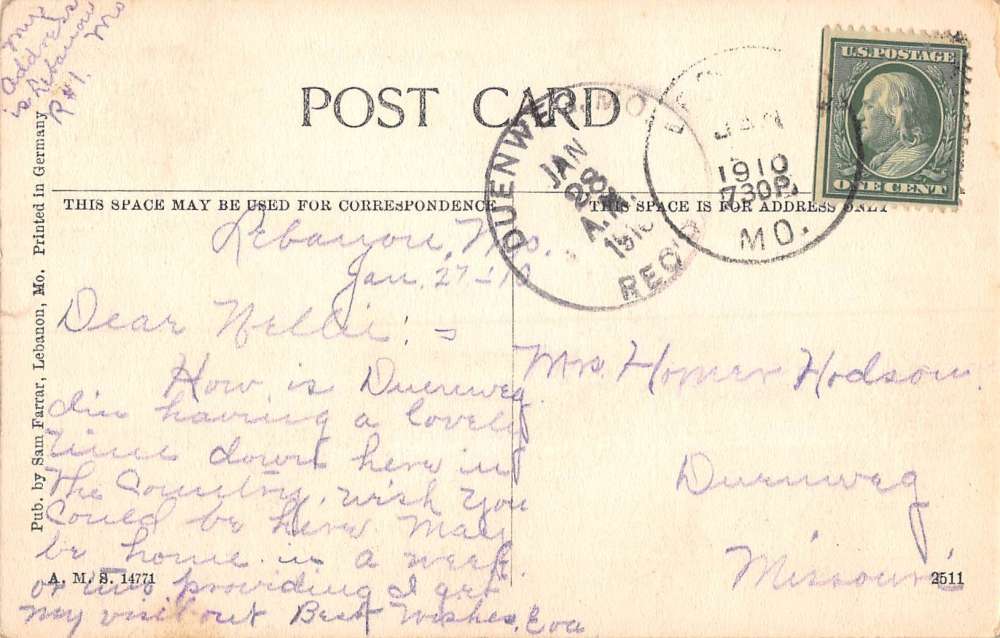 My
Address
is Lebanon
R#1. Mo
POST CARD
U.S. POSTAGE
ONE CENT
DUENWEG, MO.
JAN
28
A.M.
1910
REC'D
JAN
1910
730P.
MO.
THIS SPACE MAY BE USED FOR CORRESPONDENCE
THIS SPACE IS FOR ADDRESS ONLY
Pub. by Sam Farrar, Lebanon, Mo. Printed in Germany
Lebanon, Mo.
Jan. 27-10
Dear Nellie:-
How is Duenweg
Im having a lovely
time down here in
the Country, wish you
could be here. May
be home in a week
or two providing I get
my visit out Best Wishes, Eva
Mrs. Homer Hodson.
Duenweg
Missouri
A. M. S. 14771
2511